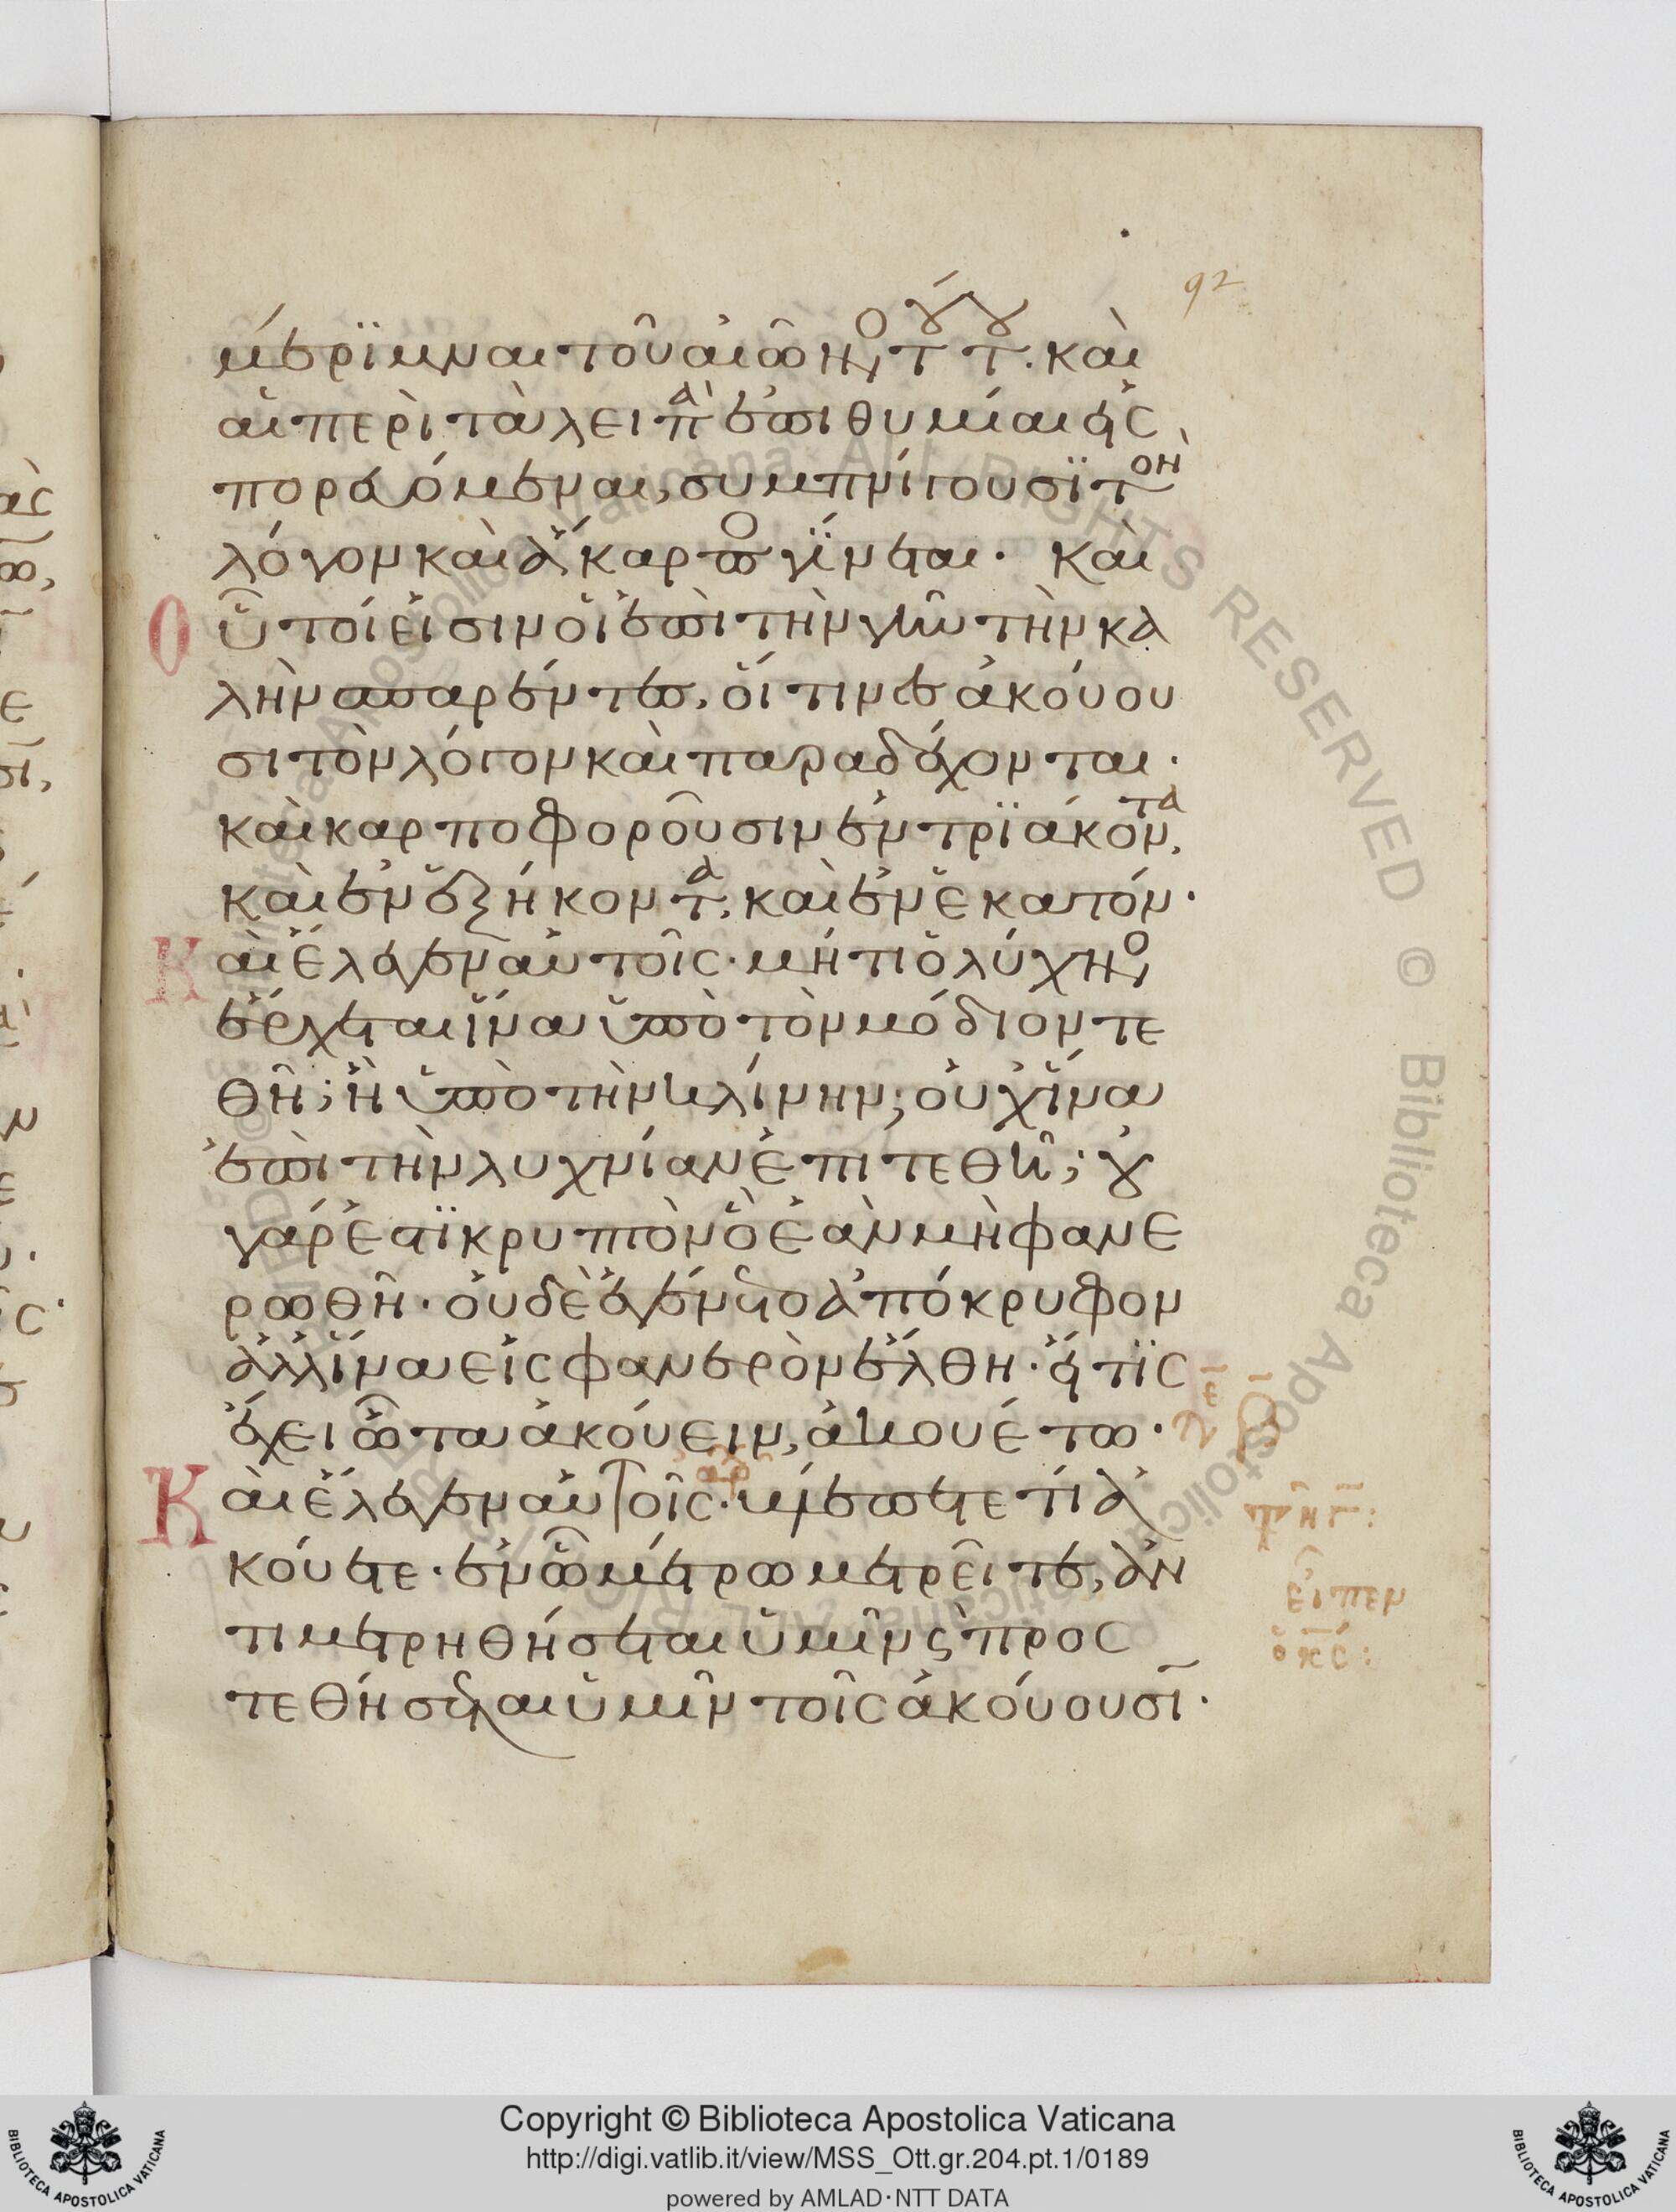 92
μέρϊμναι τοῦ αἰῶνο τούτου. καὶ
αἱ περὶ τὰ λειπὰ ἐπιθυμίαι εἰς
πορευόμεναι, συμπνίγουσϊ τὸν
λόγον καὶ ἄκαρπο γίνεται. Καὶ
Οὗτοί εἰσιν οἱ ἐπὶ τὴν γῆν τὴν κα
λὴν σπαρέντες, οἵτινες ἀκούου
σι τὸν λόγον καὶ παραδέχονται.
καὶ καρποφοροῦσιν ἐν τρϊάκοντα,
καὶ ἐν ἑξήκοντα, καὶ ἐν ἑκατόν.
Καὶ ἔλεγεν αὐτοῖς. μήτι ὁ λύχνο
ἔρχεται ἵνα ὑπὸ τὸν μόδιον τε
θῆ; ἢ ὑπὸ τὴν κλίνην; οὐχ ἵνα
ἐπὶ τὴν λυχνίαν ἐπιτεθῆ; οὐ
γάρ ἐστϊ κρυπτὸν ὃ ἐὰν μὴ φανε
ρωθῆ. οὐδὲ ἐγένετο ἀπόκρυφον
ἀλλ ἵνα εἰς φανερὸν ἔλθη. εἴ τϊς
ἔχει ὦτα ἀκούειν, ἀκουέτω.
Καὶ ἔλεγεν αὐτοῖς. βλέπετε τί ἀ
κούετε. ἐν ὧ μέτρω μετρεῖτε, ἀν
τιμετρηθήσεται ὑμῖν ϛ προσ
τεθήσεται ὑμῖν τοῖς ἀκούουσϊ.
εἶπεν
ὁ κς:
Copyright © Biblioteca Apostolica Vaticana
http://digi.vatlib.it/view/MSS_Ott.gr.204.pt.1/0189
powered by AMLAD·NTT DATA
BIBLIOTECA APOSTOLICA VATICANA
BIBLIOTECA APOSTOLICA VATICANA